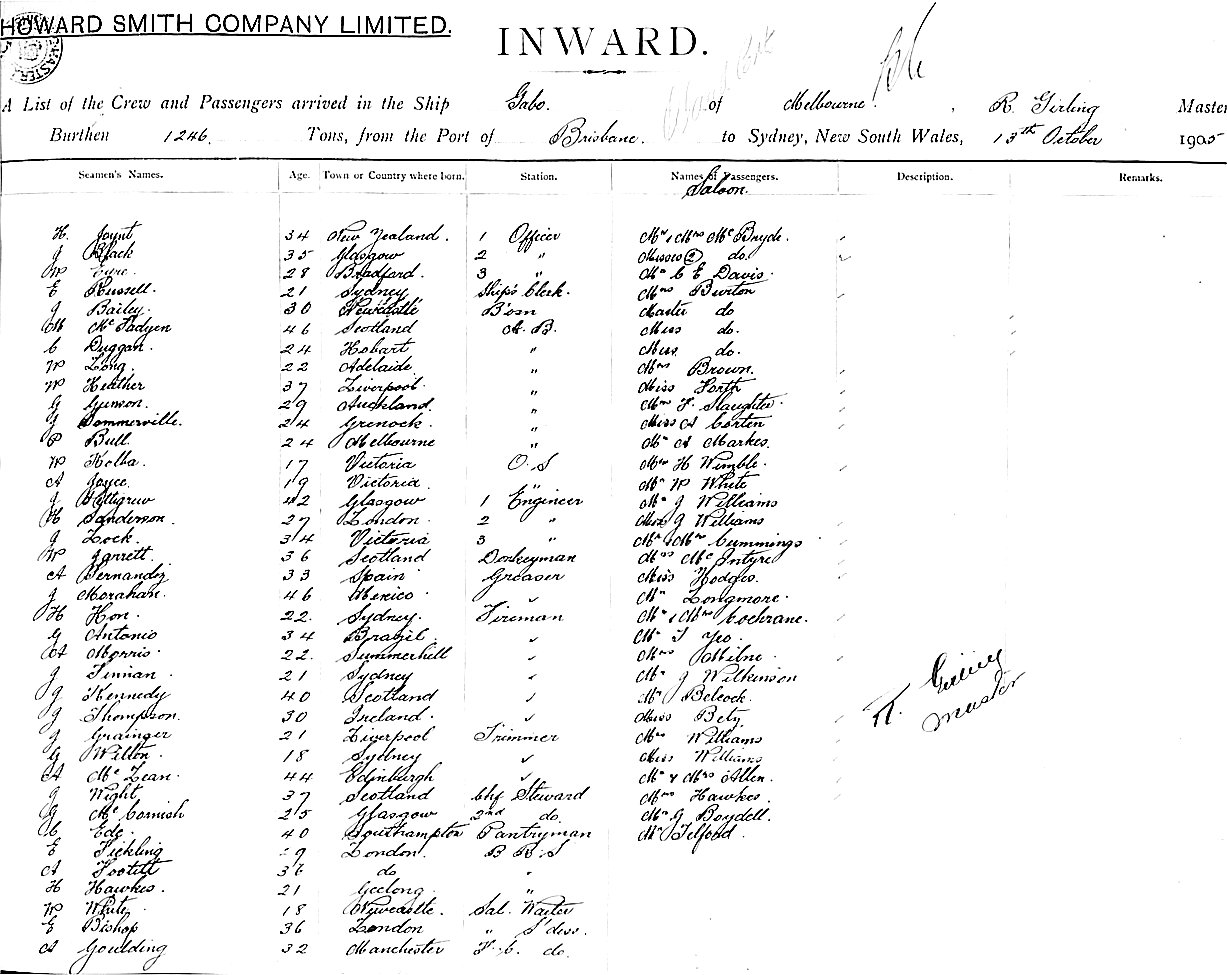 HOWARD SMITH COMPANY LIMITED.
INWARD.
A List of the Crew and Passengers arrived in the Ship Gabo. of Melbourne. , R. Girling Master
Burthen 1246 Tons, from the Port of Brisbane. to Sydney, New South Wales, 13th October 1905
Seamen's Names. Age. Town or Country where born. Station. Names of Passengers. Description. Remarks.
Saloon.
H. Joynt 34 New Zealand. 1 Officer Mr & Mrs McBryde.
J Black 35 Glasgow 2 " Misses (2) do.
W Eyre. 28 Bradford. 3 " Mr C E Davis.
E Russell. 21 Sydney Ship's Clerk. Mrs Burton
J Bailey. 30 Newcastle B'osn Master do
M McFadyen 46 Scotland A. B. Miss do.
C Duggan. 24 Hobart " Miss do.
W Long. 22 Adelaide " Mrs Brown.
W Heather 37 Liverpool. " Miss Forth
G Gunson. 29 Auckland. " Mrs F. Slaughter.
J Sommerville. 24 Grenock. " Miss A Corten
P Bull. 24 Melbourne " Mr A Markes.
W Kolba. 17 Victoria O. S Mrs H Wimble.
A Joyce. 19 Victoria. " Mr W White
J Pettigrew 42 Glasgow 1 Engineer Mr J Williams
H Sanderson. 27 London. 2 " Miss J Williams
J Lock. 34 Victoria 3 " Mr & Mrs Cummings
W Jarrett. 36 Scotland Donkeyman Mrs McIntyre
A Fernandez 33 Spain Greaser Miss Hodges.
J Morahan. 46 Mexico. Mr Longmore.
H Hon. 22. Sydney. Fireman Mr & Mrs Cochrane.
G Antonio 34 Brazil. Mr Yeo.
A Morris. 22. Summerhill Mrs Milne.
J Finnan. 21 Sydney Mr J Wilkinson
J Kennedy 40 Scotland Mr Belcock.
J Thompson. 30 Ireland. Miss Bety.
J Grainger 21 Liverpool Trimmer Mrs Williams
G Wilton. 18 Sydney Miss Williams
A McLean. 44 Edinburgh Mr & Mrs Allen.
J Wight. 37 Scotland Chf Steward Mrs Hawkes.
G McCornish 25 Glasgow 2nd do. Mr G Boydell.
C Ede. 40 Southampton Pantryman Mr Telford.
E Fickling 29 London. B R. S
A Footitt 36 do "
H Hawkes. 21 Geelong. "
W White. 18 Newcastle. Sal. Waiter
E Bishop 36 London " S'dess.
A Goulding 32 Manchester F. C. do.
R. Girling
Master